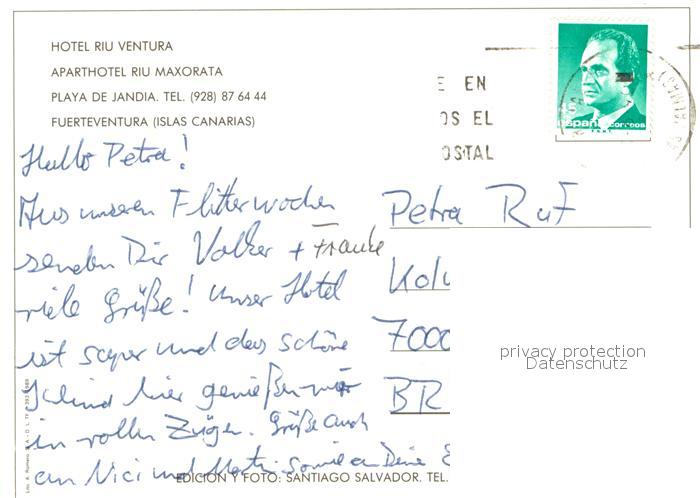 HOTEL RIU VENTURA
APARTHOTEL RIU MAXORATA
PLAYA DE JANDIA. TEL. (928) 87 64 44
FUERTEVENTURA (ISLAS CANARIAS)
E EN
OS EL
OSTAL
España correos
Hallo Petra!
Aus unseren Flitterwochen
senden Dir Volker + Frauke
viele Grüße! Unser Hotel
ist super und das schöne
hier genießen wir
in vollen Zügen. Grüße auch
an Nici und sowie an Deine E
Petra Ruf
Kolu
7000
BR
privacy protection
Datenschutz
EDICION Y FOTO: SANTIAGO SALVADOR. TEL.